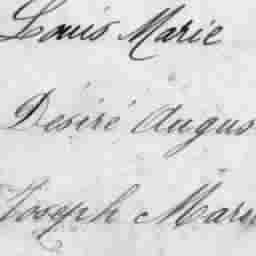 Louis Marie
Désiré Augus
Joseph Mari